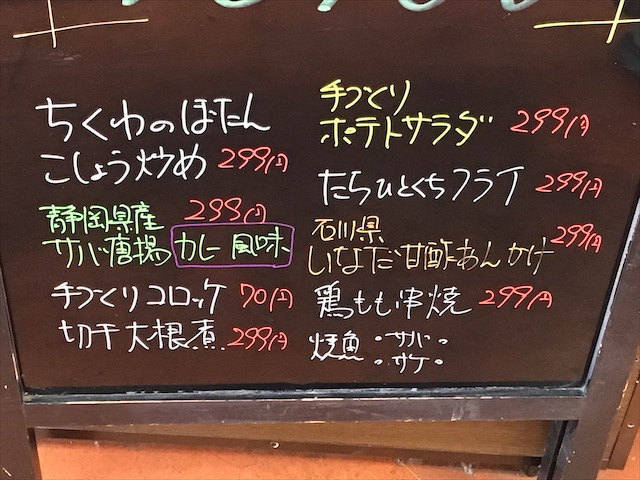 ちくわのぼたん
こしょう炒め 299円
静岡県産 299円
サバ唐揚 カレー風味
手づくりコロッケ 70円
切干大根煮 299円
手づくり
ポテトサラダ 299円
たらひとくちフライ 299円
石川県
いなだ甘酢あんかけ 299円
鶏もも串焼 299円
焼魚 ・サバ・
・サケ・